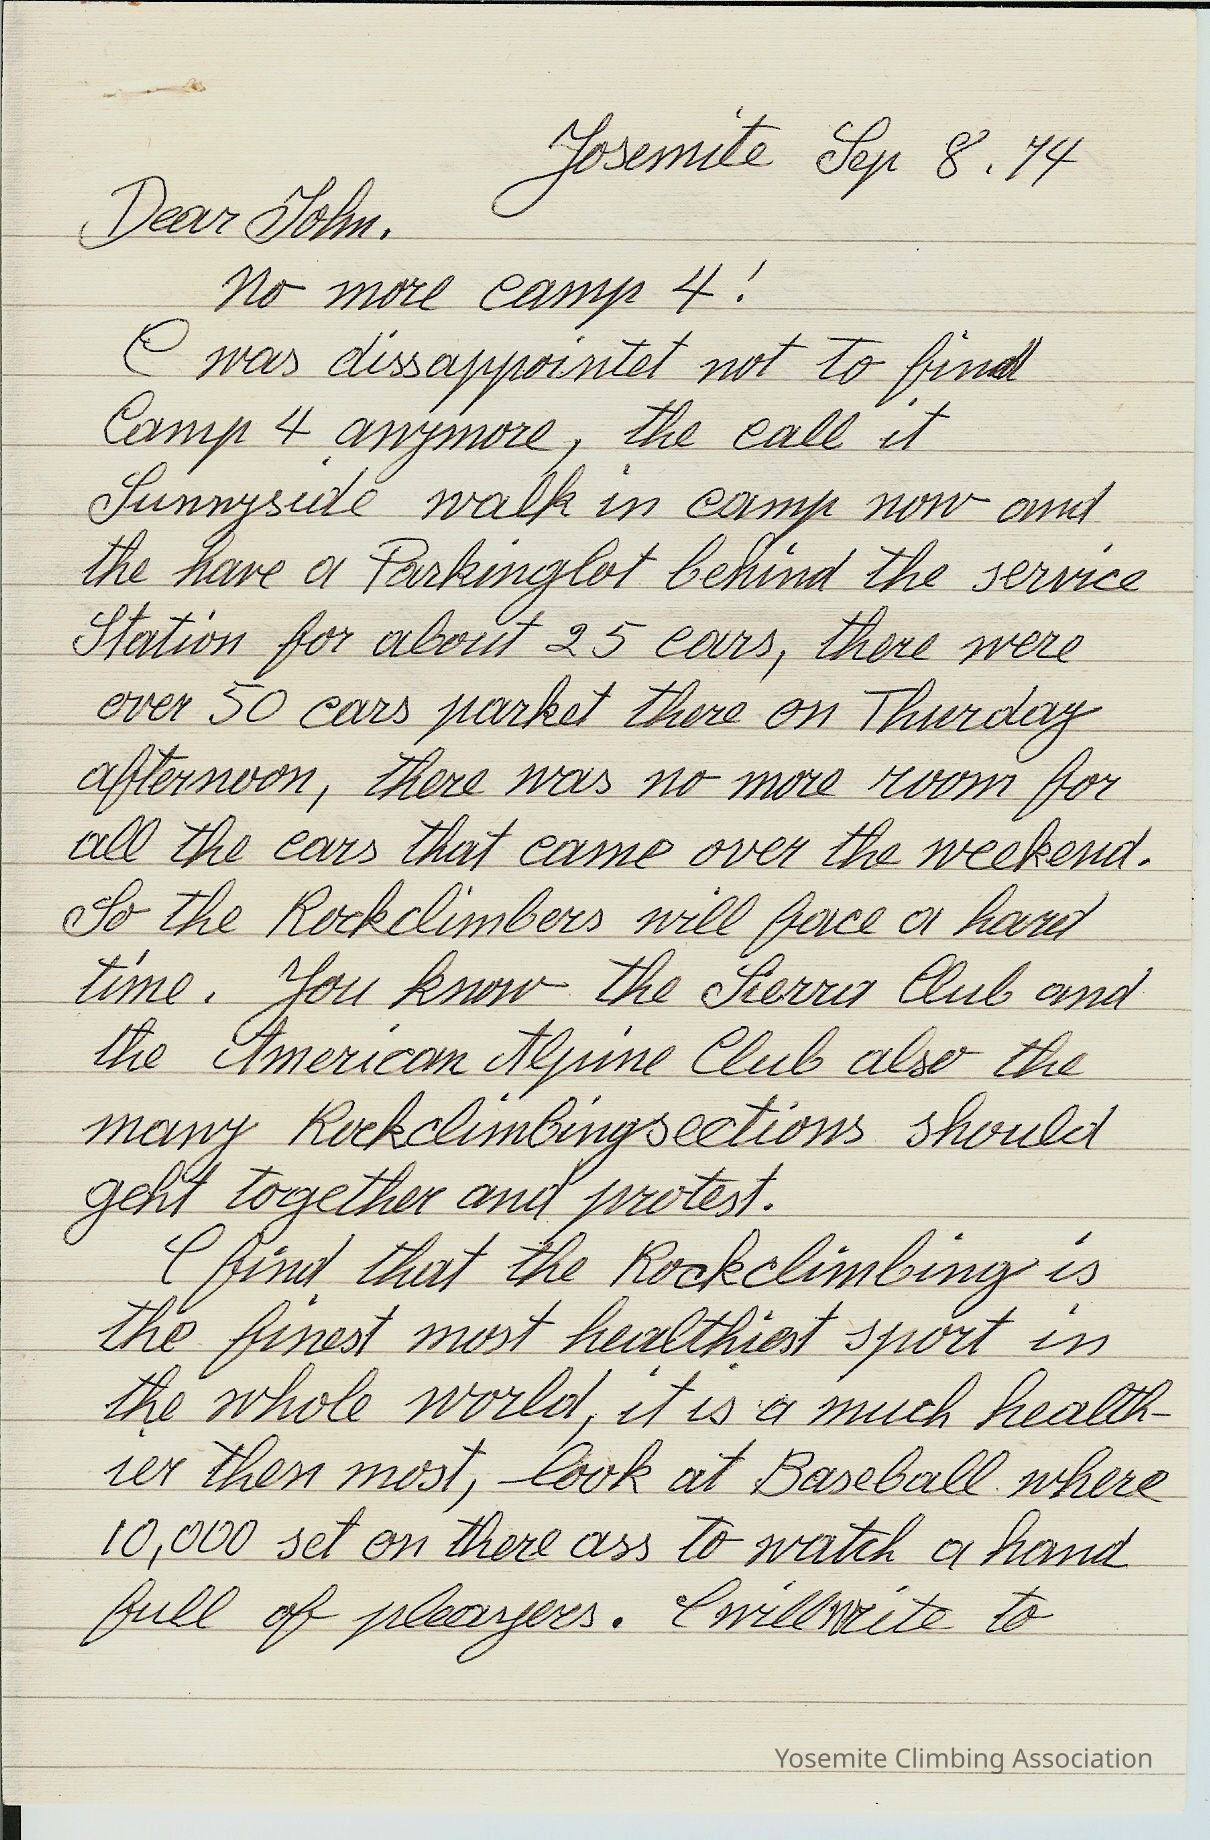 Yosemite Sep 8. 74
Dear John.
No more camp 4!
I was dissappointet not to find
Camp 4 anymore, the call it
Sunnyside walk in camp now and
the have a Parkinglot behind the service
Station for about 25 cars, there were
over 50 cars parket there on Thurday
afternoon, there was no more room for
all the cars that came over the weekend.
So the Rockclimbers will face a hard
time. You know the Sierra Club and
the American Alpine Club also the
many Rockclimbingsections should
geht together and protest.
I find that the Rockclimbing is
the finest most healthiest sport in
the whole world, it is a much health-
ier then most, look at Baseball where
10,000 set on there ass to watch a hand
full of pleayers. I will write to
Yosemite Climbing Association